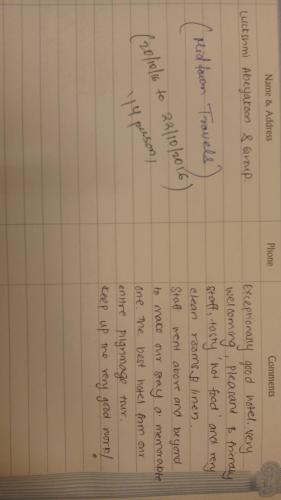 Name & Address
Phone
Comments
Luckshmi Abeyakoon & Group.
(Midtown Travels)
(20/10/16 to 22/10/2016)
14 person)
Exceptionally good hotel. very
welcoming, pleasant & friendly
staff, tasty 'hot food' and very
clean rooms & linen.
Staff went above and beyond
to make our stay a memorable
one. The best hotel from our
entire pilgrimage tour.
Keep up the very good work!